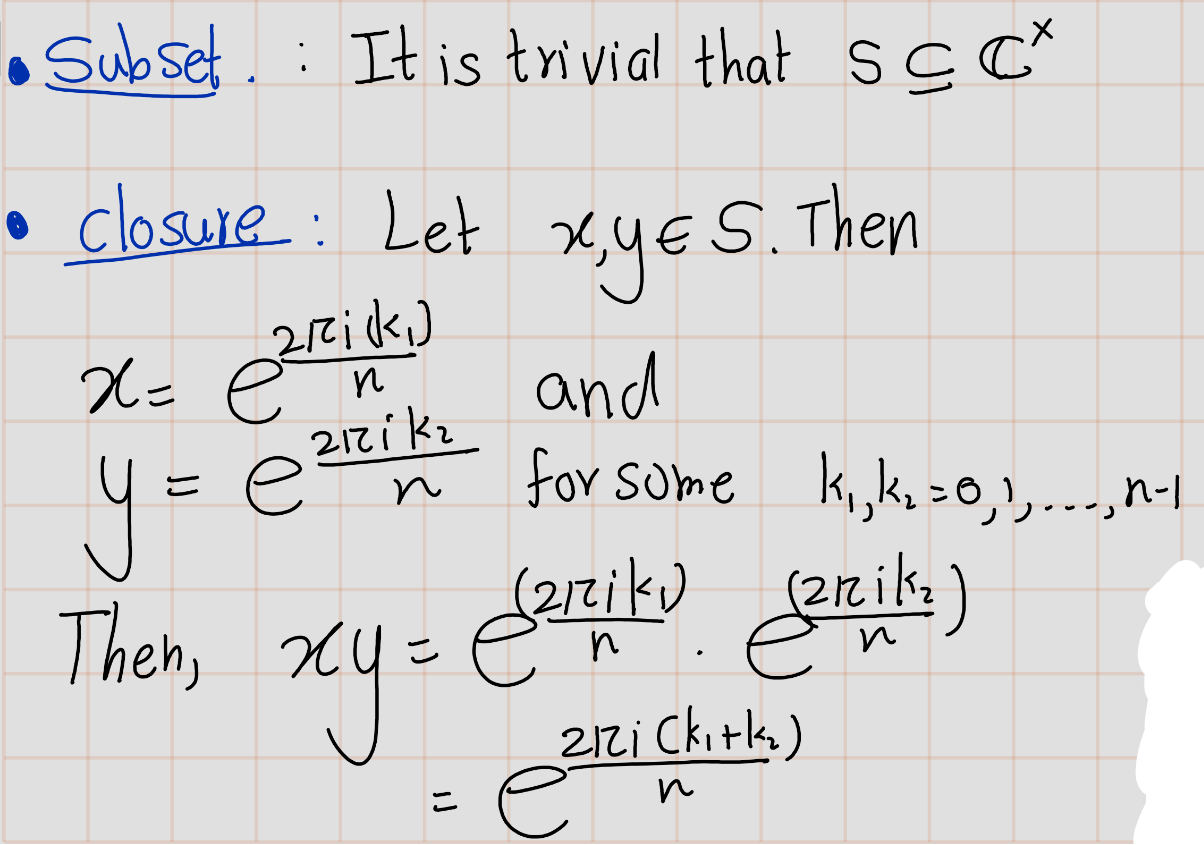 • Subset. : It is trivial that S ⊆ ℂˣ
• closure : Let x,y ∈ S. Then
x = e^{\frac{2πi(k₁)}{n}} and
y = e^{\frac{2πi k₂}{n}} for some k₁,k₂ = 0,1,...,n-1
Then, xy = e^{\frac{(2πik₁)}{n}} . e^{(\frac{2πik₂}{n})}
= e^{\frac{2πi(k₁+k₂)}{n}}